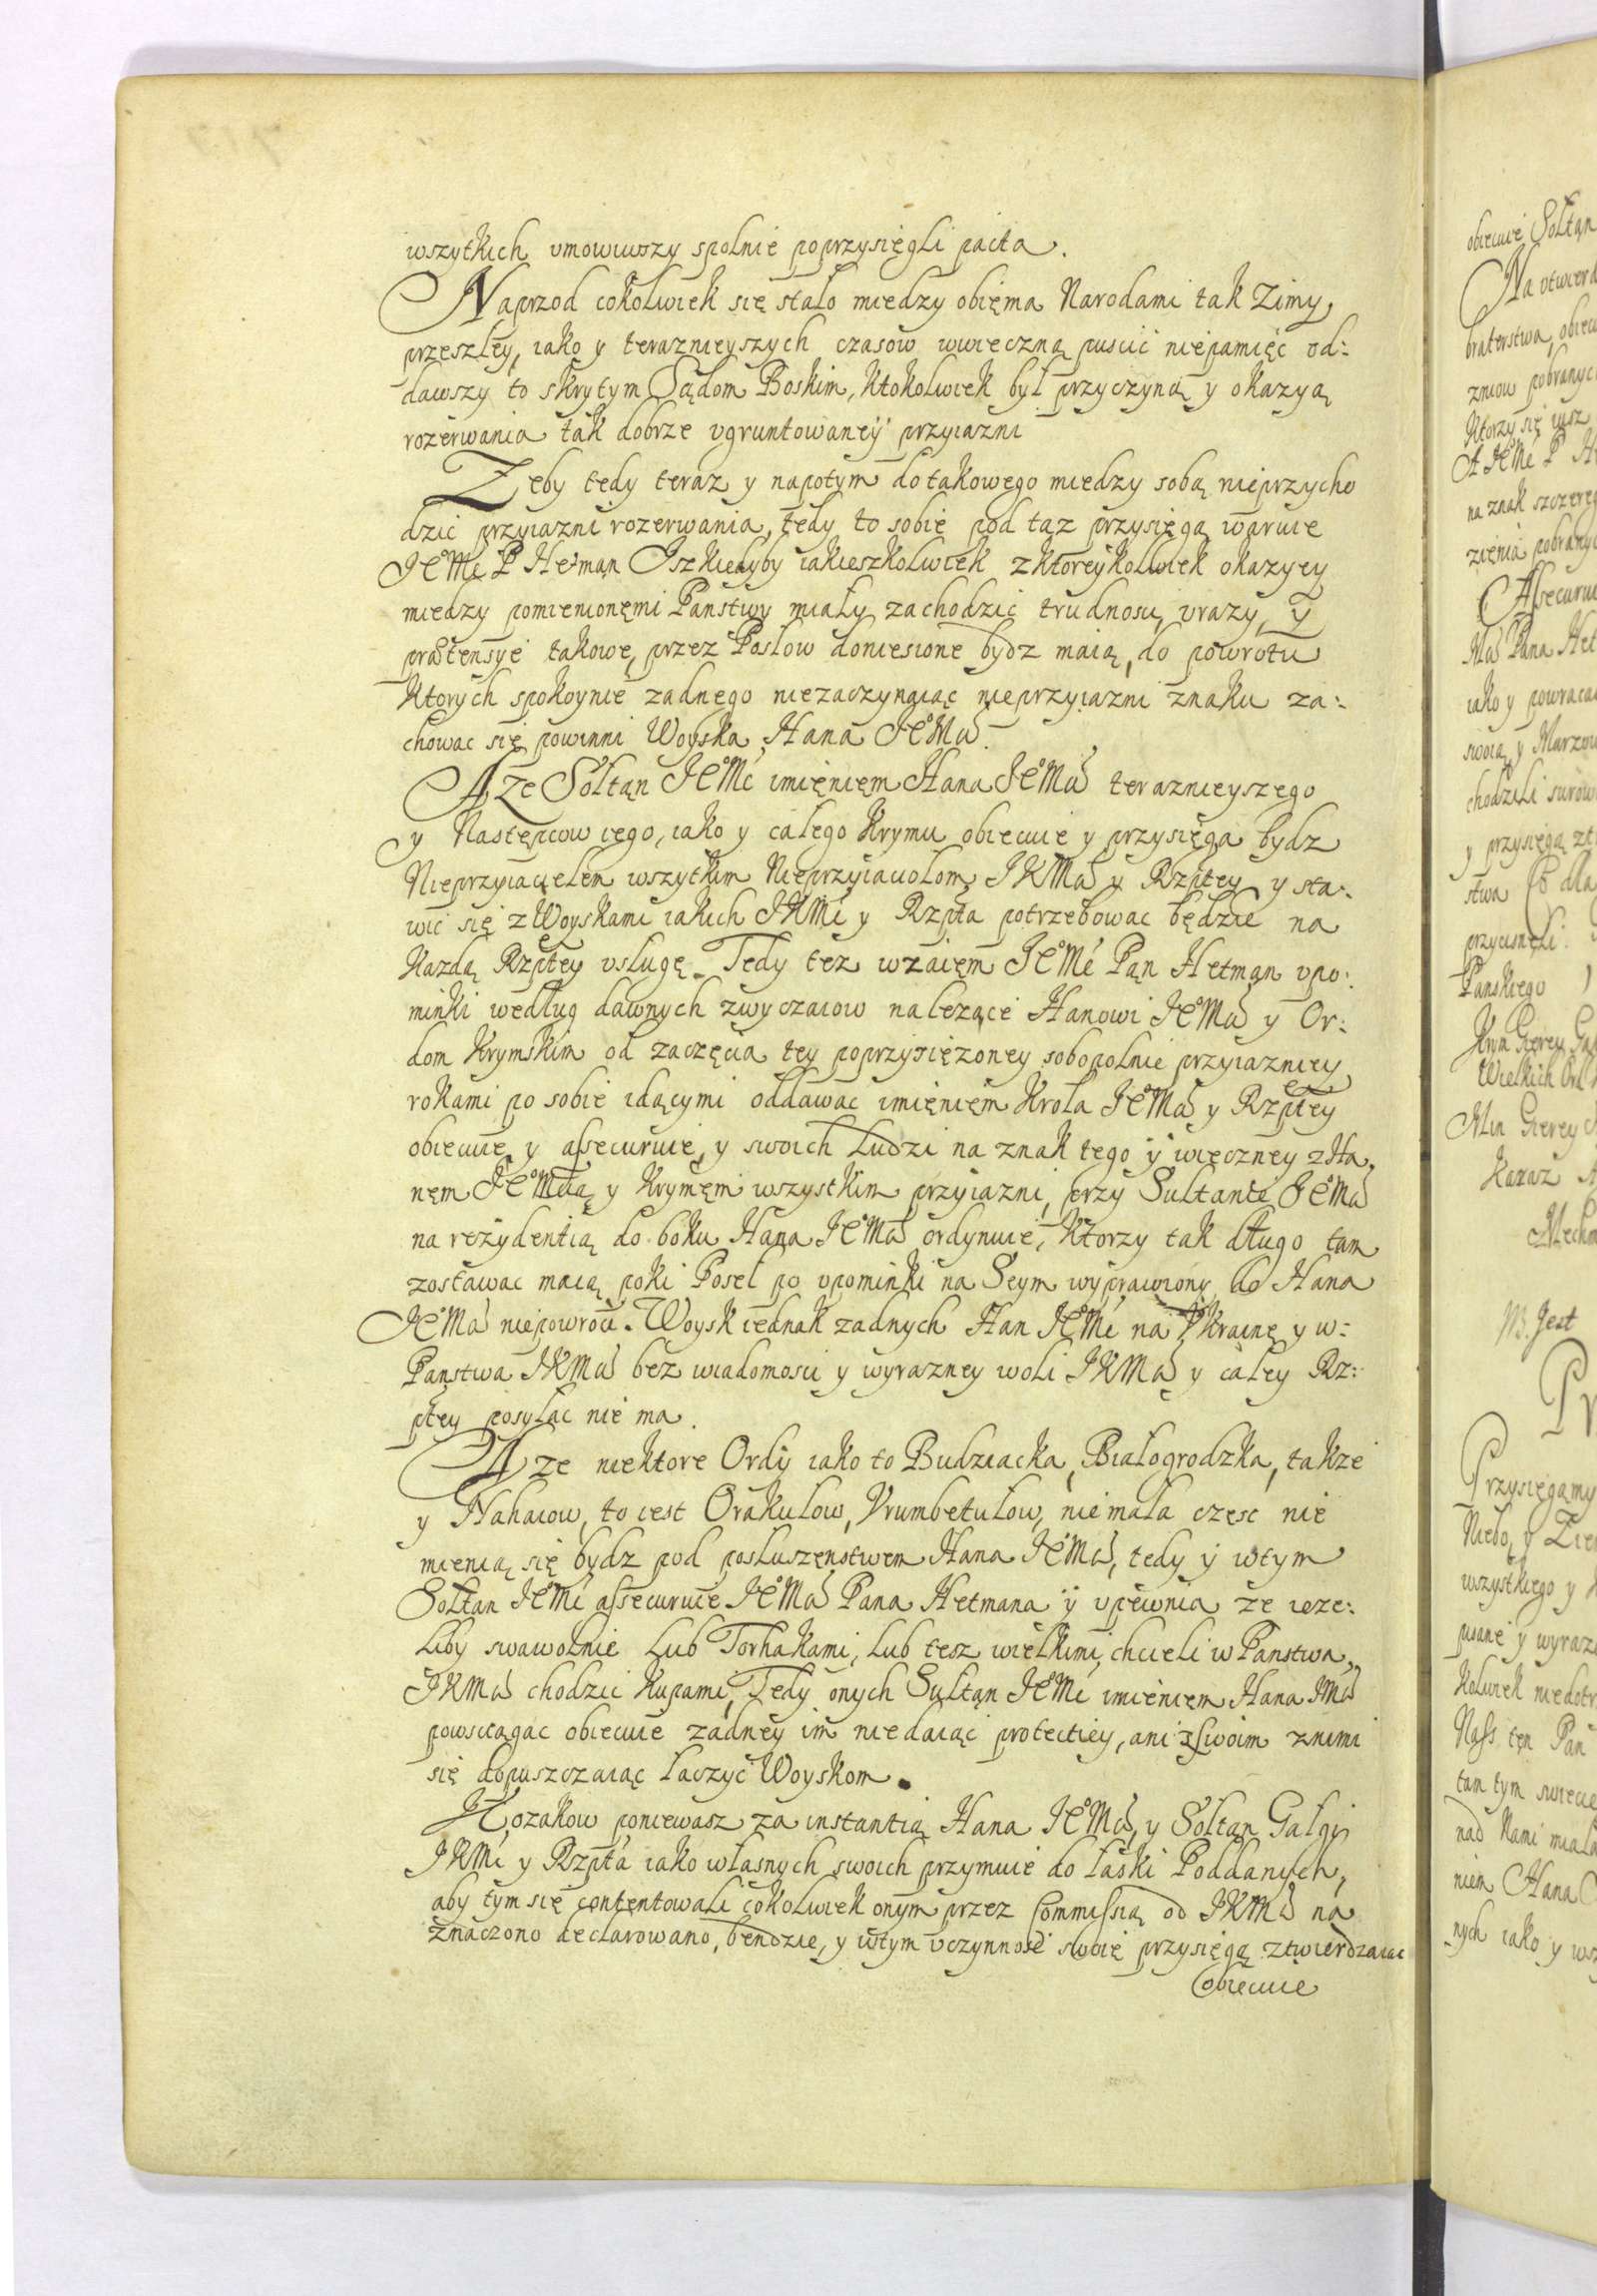 wszytkich vmowiwszy spolnie poprzysięgli pacta.
Naprzod cokolwiek się stało miedzy obięma Narodami tak Zimy
przeszłey, iako y teraznieyszych czasow wwieczną puscić niepamięć od:
dawszy to skrytym Sądom Boskim, Ktokolwiek był przyczyną y okazyą
rozerwania tak dobrze vgruntowaney przyiazni
Zeby tedy teraz y napotym do takowego miedzy sobą nieprzycho
dzić przyiazni rozerwania, tedy to sobie pod taz przysięgą waruie
JeMć P Hetman Iszkiedyby iakieszkolwiek zktoreykolwiek okazyey
miedzy pomienionęmi Panstwy miały zachodzić trudnosci, vrazy, y
praetensye takowe, przez Posłow doniesione bydz maią, do powrotu
Ktorych spokoynie zadnego niezaczynaiąc nieprzyiazni znaku za:
chować się powinni Woyska Hana JeMci.
A Ze Sołtan JeMć imięnięm Hana JeMci teraznieyszego
y Następcow iego, iako y całego Krymu obiecuie y przysięga bydz
Nieprzyiacięlem wszytkim Nieprzyiaciołom JKMci y Rzptey y sta:
wić się z Woyskami iakich JKMć y Rzpta potrzebować będzie na
Kazdą Rzptey vsługę. Tedy tez wzaięm JeMć Pan Hetman vpo:
minki według dawnych zwyczaiow nalezące Hanowi JeMci y Or:
dom Krymskim od zaczęcia tey poprzysięzoney sobopolnie przyiazniey
rokami po sobie idącymi oddawać imięnięm Krola JeMci y Rzptey
obiecuie y assecuruie, y swoich Ludzi na znak tego y wieczney z Ha,
nęm JeMcią y Krymęm wszystkim przyiazni, przy Sultanie JeMci
na rezydentią do boku Hana JeMci ordynuie, Ktorzy tak długo tam
zostawać maią poki Poseł po vpominki na Seym wyprawiony do Hana
JeMci niepowroci. Woysk iednak zadnych Han JeMć na Vkrainę y w:
Panstwa JKMci bez wiadomosci y wyrazney woli JKMci y całey Rz:
ptey posyłac nie ma.
A ze niektore Ordy iako to Budziacka, Białogrodzka, takze
y Nahaiow, to iest Orakułow, Vrumbetułow, niemała częsc nie
mienią się bydz pod posłuszęnstwem Hana JeMci, tedy y wtym
Sołtan JeMć assecuruie JeMci Pana Hetmana y vpewnia ze ieze:
Liby swawolnie Lub Torhakami, Lub tesz wielkimi chcieli w Panstwa,
JKMci chodzić Kupami, Tedy onych Sułtan JeMć imieniem Hana JMci
powsciągac obiecuie zadney im niedaiąc protectiey, ani swoim znimi
się dopuszczaiąc łaczyć Woyskom.
Kozakow poniewasz za instantią Hana JeMci, y Sołtan Gałgi
JKMć y Rzpta iako własnych swoich przymuie do łaski Poddanych,
aby tym się contentowali cokolwiek onym przez Commissią od JKMci na
znaczono declarowano, bendzie, y wtym vczynnosć swoie przysięgą ztwierdzaiac
Obiecuie